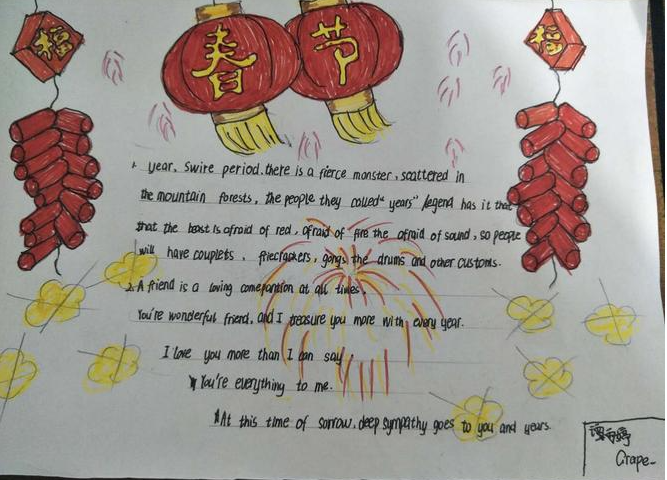 福
春节
福
1. year, swire period, there is a fierce monster, scattered in
the mountain forests, the people they called "years" legend has it that
that the beast is afraid of red, afraid of fire the afraid of sound, so people
will have couplets, firecrackers, gongs the drums and other customs.
2. A friend is a loving comepantion at all times
You're wonderful friend, and I treasure you more with every year.
I love you more than I can say,
You're everything to me.
At this time of sorrow, deep sympathy goes to you and years.
婷
Grape-